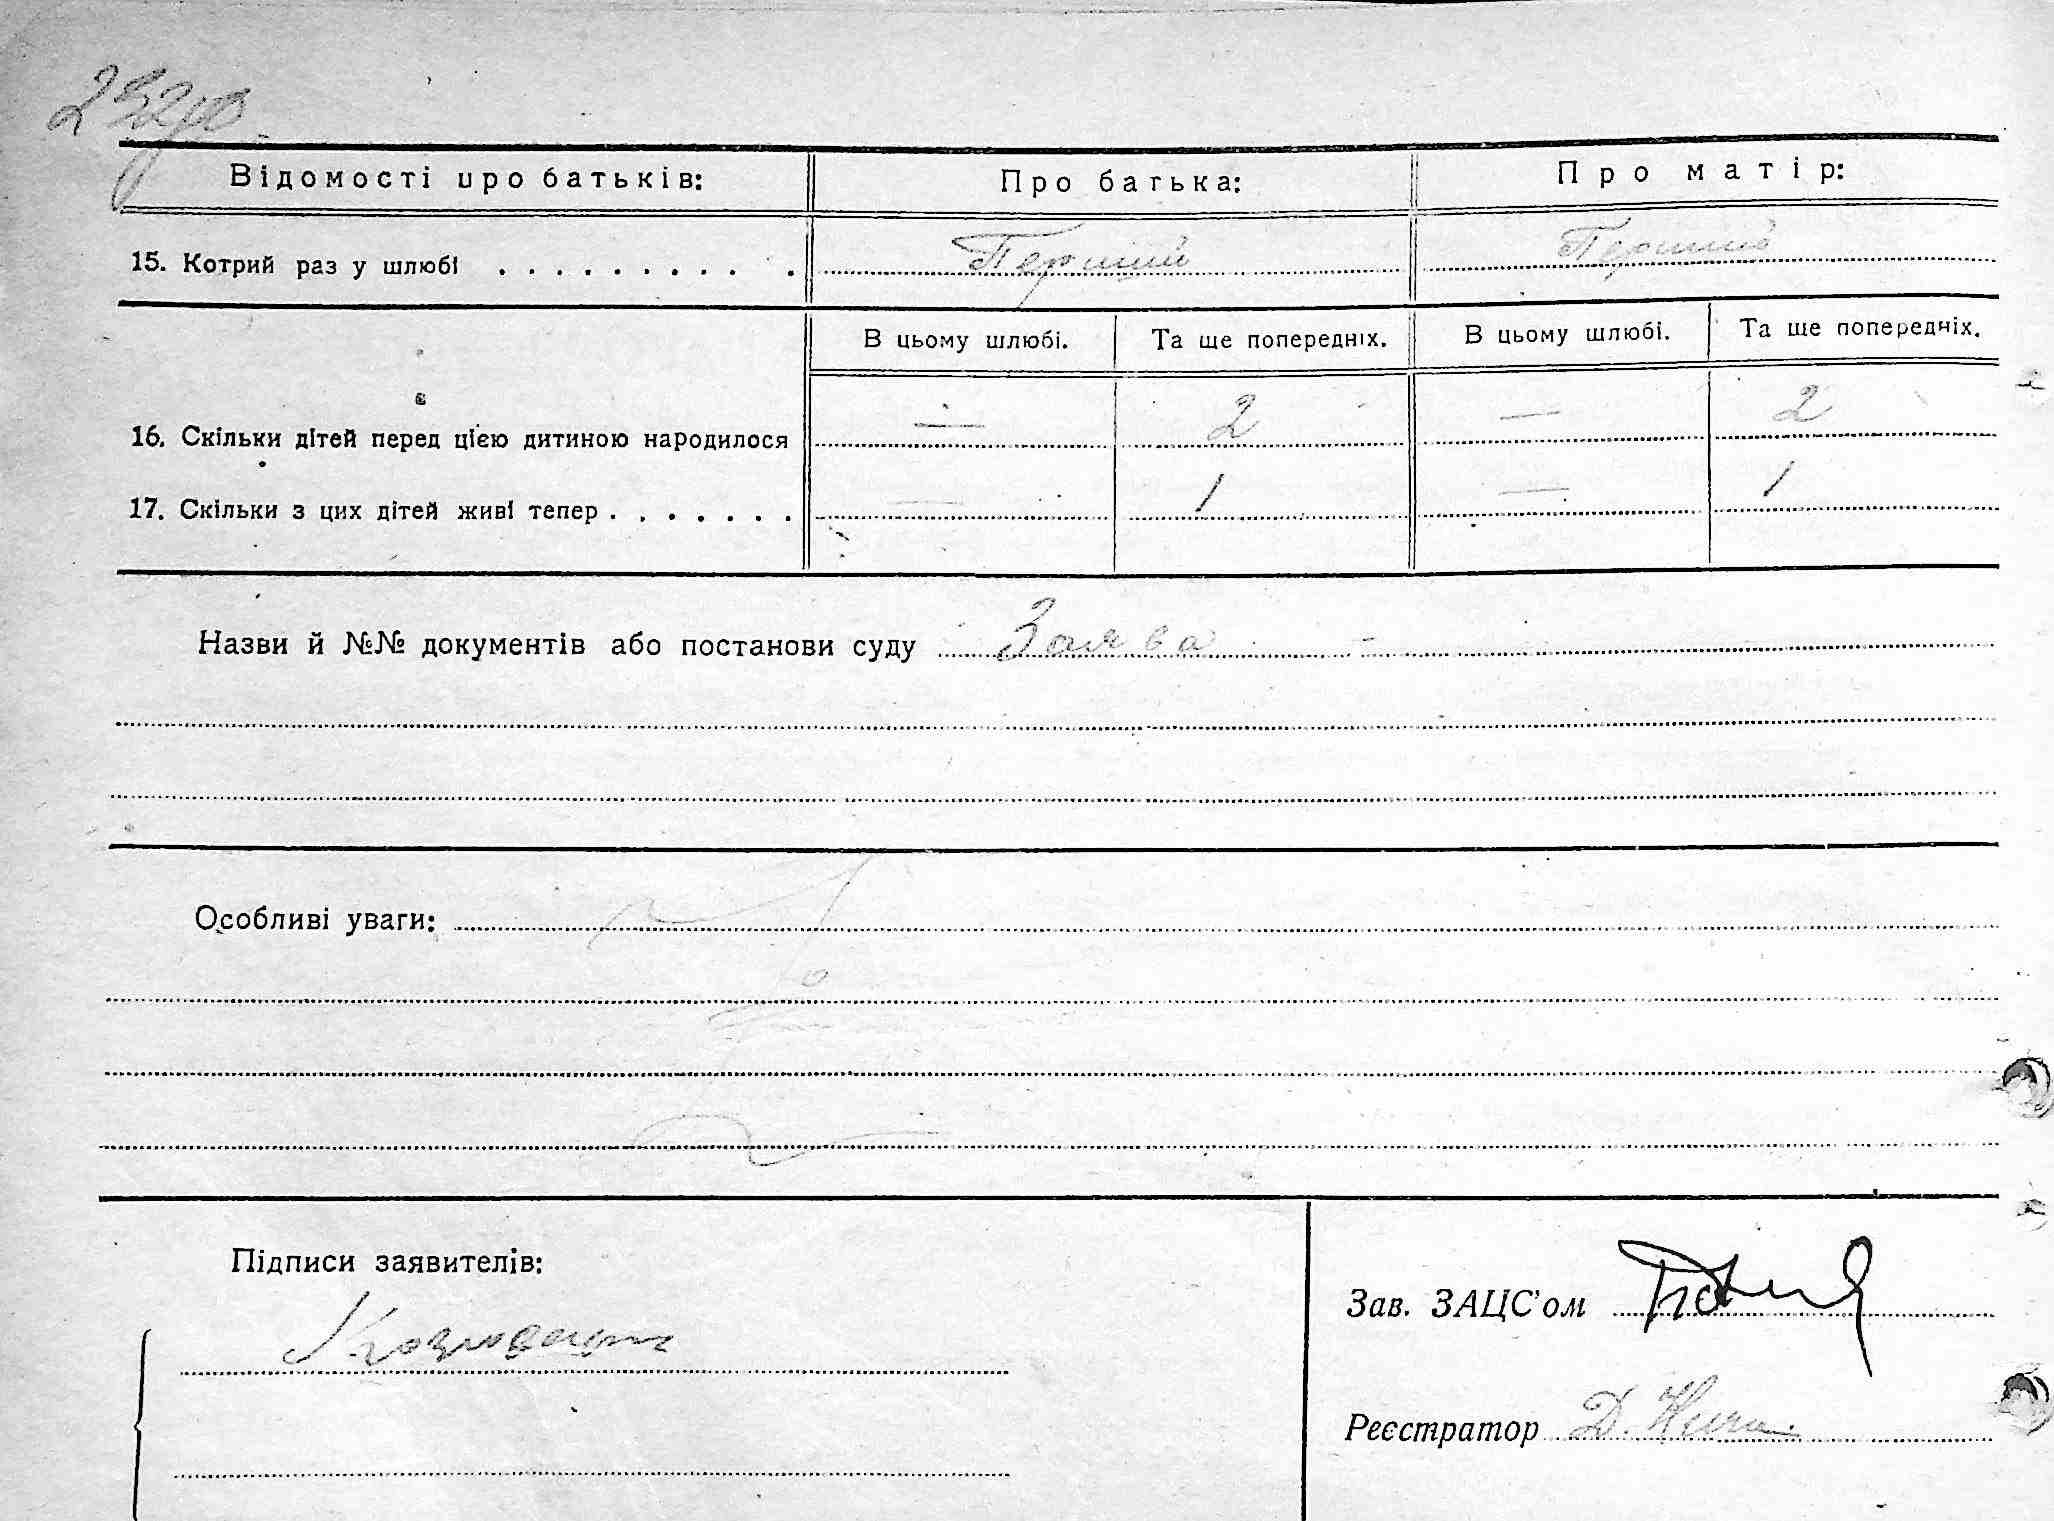 Відомості про батьків: Про батька: Про матір:
15. Котрий раз у шлюбі . . . . . . . . . . . Перший Перший
В цьому шлюбі. Та ще попередніх. В цьому шлюбі. Та ще попередніх.
16. Скільки дітей перед цією дитиною народилося — 2 — 2
17. Скільки з цих дітей живі тепер . . . . . . . — 1 — 1
Назви й №№ документів або постанови суду Заява
Особливі уваги:
Підписи заявителів:
Зав. ЗАЦС'ом
Реєстратор Д.